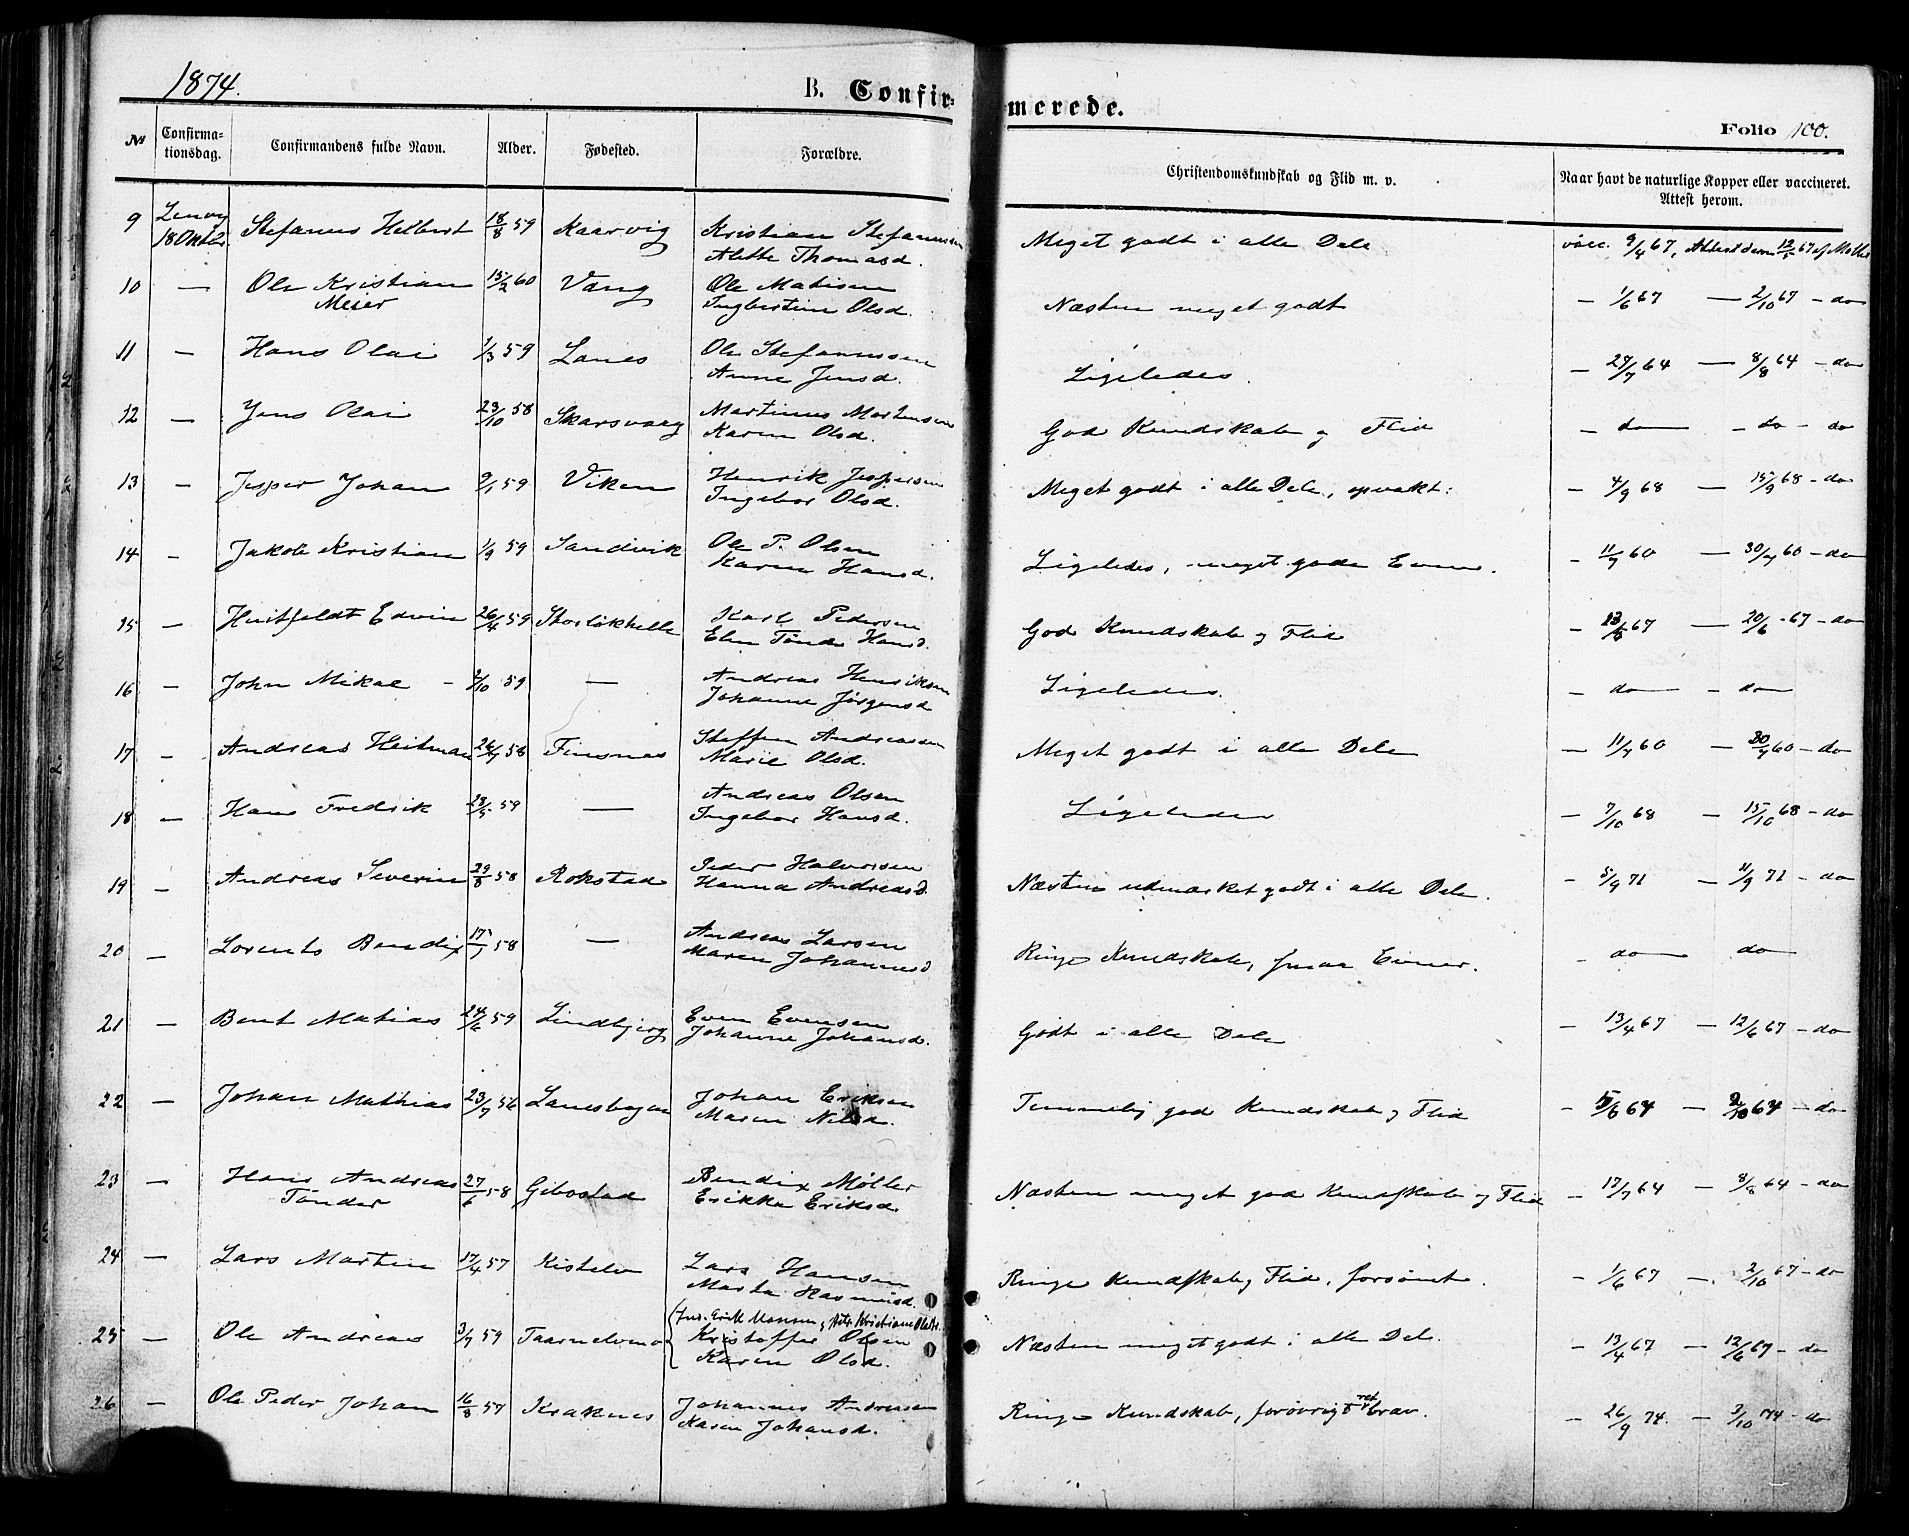 1874.
B. Confir-
merede.
Folio 100.
№ Confirma-tionsdag. Confirmandens fulde Navn. Alder. Fødested. Forældre. Christendomskundskab og Flid m. v. Naar havt de naturlige Kopper eller vaccineret. Attest herom.
9 Lenvig 18 Oktbr. Stefanus Helbert 18/8 59 Kaarvig Kristian Stefanussen Alette Thomasd. Meget godt i alle Dele vacc. 9/4 67, Attest derom 12/5 67 af
10 — Ole Kristian Meier 15/2 60 Vang Ole Matisen Ingbertine Olsd. Næsten meget godt — 1/6 67 — 2/10 67 — do
11 — Hans Olai 1/3 59 Lanes Ole Stefanussen Anne Jensd. Ligeledes. — 27/7 64 — 8/8 64 — do
12 — Jens Olai 23/10 58 Skarsvaag Martinus Mortensen Karen Olsd. God Kundskab og Flid — do — do — do
13 — Jesper Johan 9/1 59 Viken Henrik Jespersen Ingebor Olsd. Meget godt i alle Dele, opvakt: — 4/9 68 — 15/9 68 — do
14 — Jakob Kristian 1/9 59 Sandvik Ole P. Olsen Karen Hansd. Ligeledes, meget gode Evner. — 11/7 60 — 30/7 60 — do
15 — Huitfeldt Edvin 26/4 59 Storlökhelle Karl Pedersen Elen Tønder Hansd. God Kundskab og Flid — 67 — 20/6 67 — do
16 — John Mikal 2/10 59 — Andreas Henriksen Johanne Jørgensd Ligeledes. — do — do
17 — Andreas Heitman 26/7 58 Finsnes Steffen Andreassen Marie Olsd. Meget godt i alle Dele — 11/7 60 — 30/7 60 — do
18 — Hans Fredrik 23/5 59 — Andreas Olsen Ingebor Hansd. Ligeledes — 7/10 68 — 15/10 68 — do
19 — Andreas Severin 29/8 58 Rokstad Peder Halvorsen Hanna Andreasd. Næsten udmærket godt i alle Dele. — 5/9 71 — 11/9 71 — do
20 — Lorents Bendix 17/7 58 — Andreas Larsen Maren Johannesd Ringe Kundskab, smaa Evner. — do — do
21 — Bent Matias 24/6 59 Lindbjerg Even Evensen Johanne Johansd. Godt i alle Dele — 13/4 67 — 12/6 67 — do
22 — Johan Mathias 23/7 56 Lanesbogen Johan Eriksen Maren Nilsd. Temmelig god Kundskab og Flid — 64 — 2/10 64 — do
23 — Hans Andreas Tønder 27/6 58 Gibostad Bendix Møller Erikke Eriksd. Næsten meget god Kundskab og Flid — 17/7 64 — 8/8 64 — do
24 — Lars Martin 17/4 57 Kistelv Lars Hansen Marta Rasmusd. Ringe Kundskab og Flid, forsømt. — 1/6 67 — 2/10 67 — do
25 — Ole Andreas 3/7 59 Taarnelvmo Kristoffer Olsen Karen Olsd. Næsten meget godt i alle Dele. — 13/4 67 — 12/6 67 — do
26 — Ole Peder Johan 16/8 57 Kraknes Johannes Andersen Karen Johansd. Ringe Kundskab, forøvrigt ret brav. — 26/9 74. — 3/10 74 — do